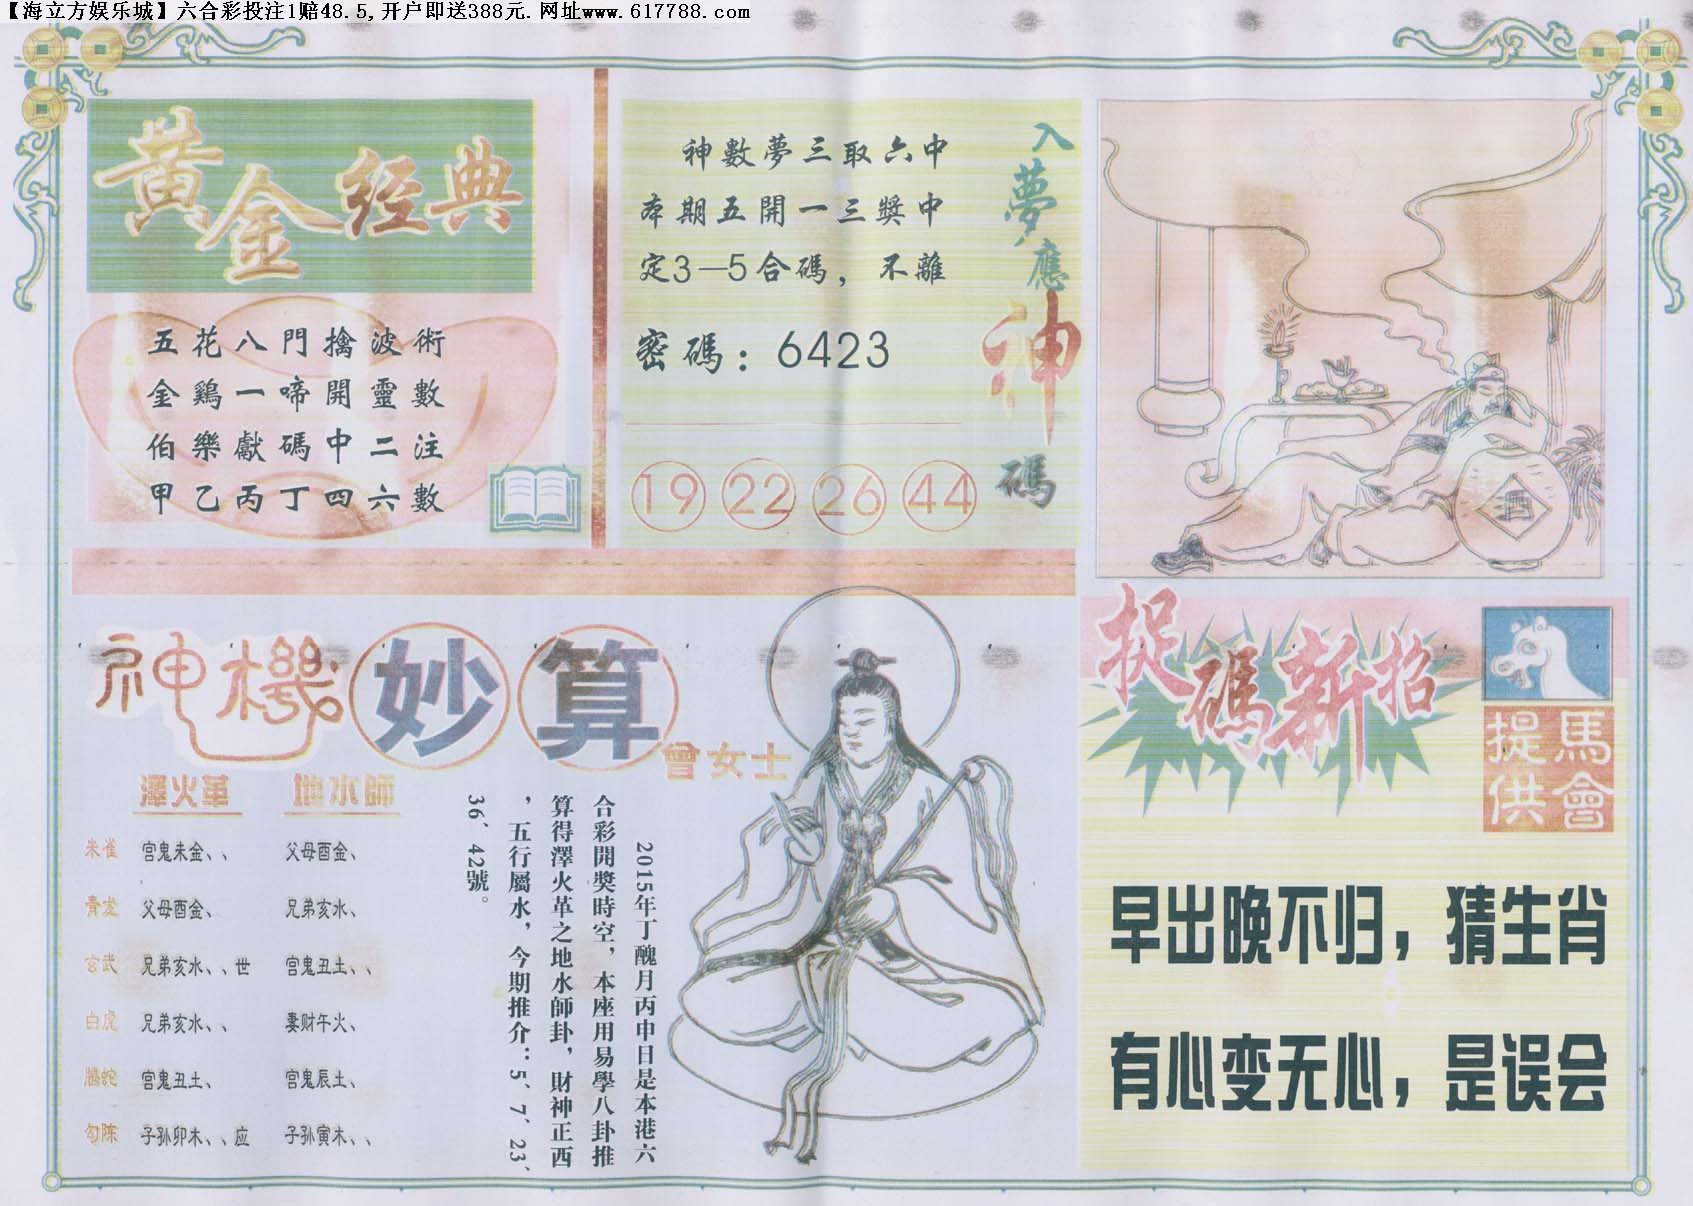 【海立方娱乐城】六合彩投注1赔48.5,开户即送388元.网址www.617788.com
黄金经典
五花八門擒波術
金鷄一啼開靈數
伯樂獻碼中二注
甲乙丙丁四六數
神數夢三取六中
本期五開一三獎中
定3—5合碼，不離
密碼：6423
19 22 26 44
入夢應神碼
神機妙算
曾女士
澤火革 地水師
朱雀 官鬼未金、、 父母酉金、
青龙 父母酉金、 兄弟亥水、
玄武 兄弟亥水、、世 官鬼丑土、、
白虎 兄弟亥水、、 妻财午火、
腾蛇 官鬼丑土、 官鬼辰土、
勾陈 子孙卯木、、应 子孙寅木、、
2015年丁醜月丙申日是本港六
合彩開獎時空，本座用易學八卦推
算得澤火革之地水師卦，財神正西
，五行屬水，今期推介：5、7、23、
36、42號。
捉碼新招
馬會提供
早出晚不归，猜生肖
有心变无心，是误会